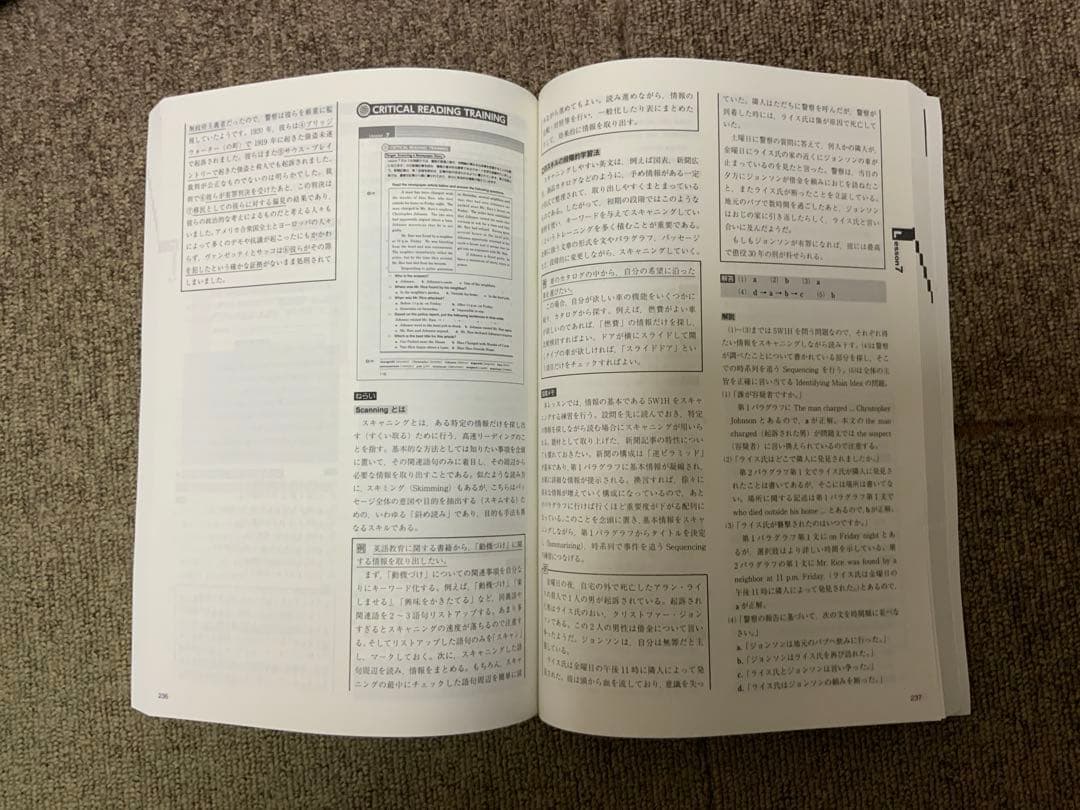 無政府主義者だったので、警察は彼らを頻繁に監
視していたようです。1920年、彼らは④ブリッジ
ウォーター（の町）で 1919年に起きた強盗未遂
で起訴されました。彼らはまた⑤サウス・ブレイ
ントリーで起きた強盗と殺人でも起訴されました。
裁判が公正なものでないのは明らかでした。裁
判で⑥彼らが有罪判決を受けたあと、この判決は
⑦移民としての彼らに対する偏見の結果であり、
彼らの政治的な考えによるものだと考える人々も
いました。アメリカ合衆国全土とヨーロッパの人々
によって多くのデモや抗議が起こったにもかかわ
らず、ヴァンゼッティとサッコは⑧彼らがその罪
を犯したという確かな証拠がないまま処刑されて
しまいました。
236
CRITICAL READING TRAINING
Lesson 7
Target: Scanning a Newspaper Story
Read the newspaper article below and answer the following questions.
ねらい
Scanning とは
スキャニングとは、ある特定の情報だけを探し出
す（すくい取る）ために行う、高速リーディングのこ
とを指す。基本的な方法としては知りたい事項を念頭
に置いて、その関連語句のみに着目し、その周辺から
必要な情報を取り出すことである。似たような読み方
に、スキミング（Skimming）もあるが、こちらはパッ
セージ全体の意図や目的を抽出する（スキムする）た
めの、いわゆる「斜め読み」であり、目的も手法も異
なるスキルである。
例 英語教育に関する書籍から、「動機づけ」に関
する情報を取り出したい。
まず、「動機づけ」についての関連事項を自分な
りにキーワード化する。例えば、「動機づけ」「楽
しませる」、「興味をかきたてる」など、同義語や
関連語を２～３語句リストアップする。あまり多
すぎるとスキャニングの速度が落ちるので注意す
る。そしてリストアップした語句のみを「スキャン」
し、マークしておく。次に、スキャニングした語
句周辺を読み、情報をまとめる。もちろん、スキャ
ニングの最中にチェックした語句周辺を簡単に読
みながら進めてもよい。読み進めながら、情報の
比較・対照等を行い、一般化したり表にまとめた
りして、効果的に情報を取り出す。
の段階的学習法
スキャニングしやすい英文は、例えば図表、新聞広
告、商品カタログなどのように、予め情報がある一定
の形式で整理されて、取り出しやすくまとまっている
ものである。したがって、初期の段階ではこのような
教材を使い、キーワードを与えてスキャニングしてい
くというトレーニングを多く積むことが重要である。
次第に扱う文章の形式を文やパラグラフ、パッセージ
へと段階的に変更しながら、スキャニングしていく。
例 車のカタログの中から、自分の希望に沿った
車を選びたい。
この場合、自分が欲しい車の機能をいくつかに
絞り、カタログから探す。例えば、燃費がよい車
が欲しいのであれば、「燃費」の情報だけを探し、
比較検討すればよい。ドアが横にスライドして開
くタイプの車が欲しければ、「スライドドア」とい
う項目だけをチェックすればよい。
本レッスンでは、情報の基本である5W1Hをスキャ
ニングする練習を行う。設問を先に読んでおき、特定
の情報を探しながら読む場合にスキャニングが用いら
れる。題材として取り上げた、新聞記事の特性につい
ても慣れておきたい。新聞の構成は「逆ピラミッド」
が基本であり、第１パラグラフに基本情報が凝縮され、
次第に詳細な情報が提示される。換言すれば、徐々に
細かな情報が増えていく構成になっているので、あと
のパラグラフに行けば行くほど重要度が下がる配列に
なっている。このことを念頭に置き、基本情報をスキャ
ニングしながら、第１パラグラフからタイトルを決定
し（Summarizing）、時系列で事件を追う Sequencing
の練習につなげる。
金曜日の夜、自宅の外で死亡したアラン・ライ
スの殺人で１人の男が起訴されている。起訴され
た男はライス氏のおい、クリストファー・ジョン
ソンである。この２人の男性は借金について言い
争ったようだ。ジョンソンは、自分は無罪だと主
張している。
ライス氏は金曜日の午後11時に隣人によって発
見された。彼は頭から血を流しており、意識を失っ
ていた。隣人はただちに警察を呼んだが、警察が
到着した時には、ライス氏は傷が原因で死亡してい
た。
土曜日に警察の質問に答えて、何人かの隣人が、
金曜日にライス氏の家の近くにジョンソンの車が
止まっているのを見たと言った。警察は、当日の
夕方にジョンソンが借金を頼みにおじを訪ねたこ
と、またライス氏が断ったことを立証している。
地元のパブで数時間を過ごしたあと、ジョンソン
はおじの家に引き返したらしく、ライス氏と言い
合いに及んだようだ。
もしもジョンソンが有罪になれば、彼には最高
で懲役30年の刑が科せられる。
解答 (1) a (2) b (3) a
(4) d→a→b→c (5) b
解説
(1)～(3)までは5W1Hを問う問題なので、それぞれ得
たい情報をスキャニングしながら読み下す。(4)は警察
が調べたことについて書かれている部分を探し、そこ
での時系列を追う Sequencing を行う。(5)は全体の主
旨を正確に言い当てる Identifying Main Idea の問題。
(1)「誰が容疑者ですか。」
第１パラグラフに The man charged ... Christopher
Johnson とあるので、a が正解。本文の the man
charged（起訴された男）が問題文では the suspect
（容疑者）に言い換えられているので注意する。
(2)「ライス氏はどこで隣人に発見されましたか。」
第２パラグラフ第１文でライス氏が隣人に発見さ
れたことは書いてあるが、そこには場所は書いてな
い。場所に関する記述は第１パラグラフ第１文で
who died outside his home ... とあるので、b が正解。
(3)「ライス氏が襲撃されたのはいつですか。」
第１パラグラフ第１文に on Friday night とあ
るが、選択肢はより詳しい時間を示している。第
２パラグラフの第１文に Mr. Rice was found by a
neighbor at 11 p.m. Friday.（ライス氏は金曜日の
午後11時に隣人によって発見された）とあるので、
a が正解。
(4)「警察の報告に基づいて、次の文を時間順に並べな
さい。」
a.「ジョンソンは地元のパブへ飲みに行った。」
b.「ジョンソンはライス氏を再び訪れた。」
c.「ライス氏とジョンソンは言い争った。」
d.「ライス氏はジョンソンの頼みを断った。」
Lesson 7
237